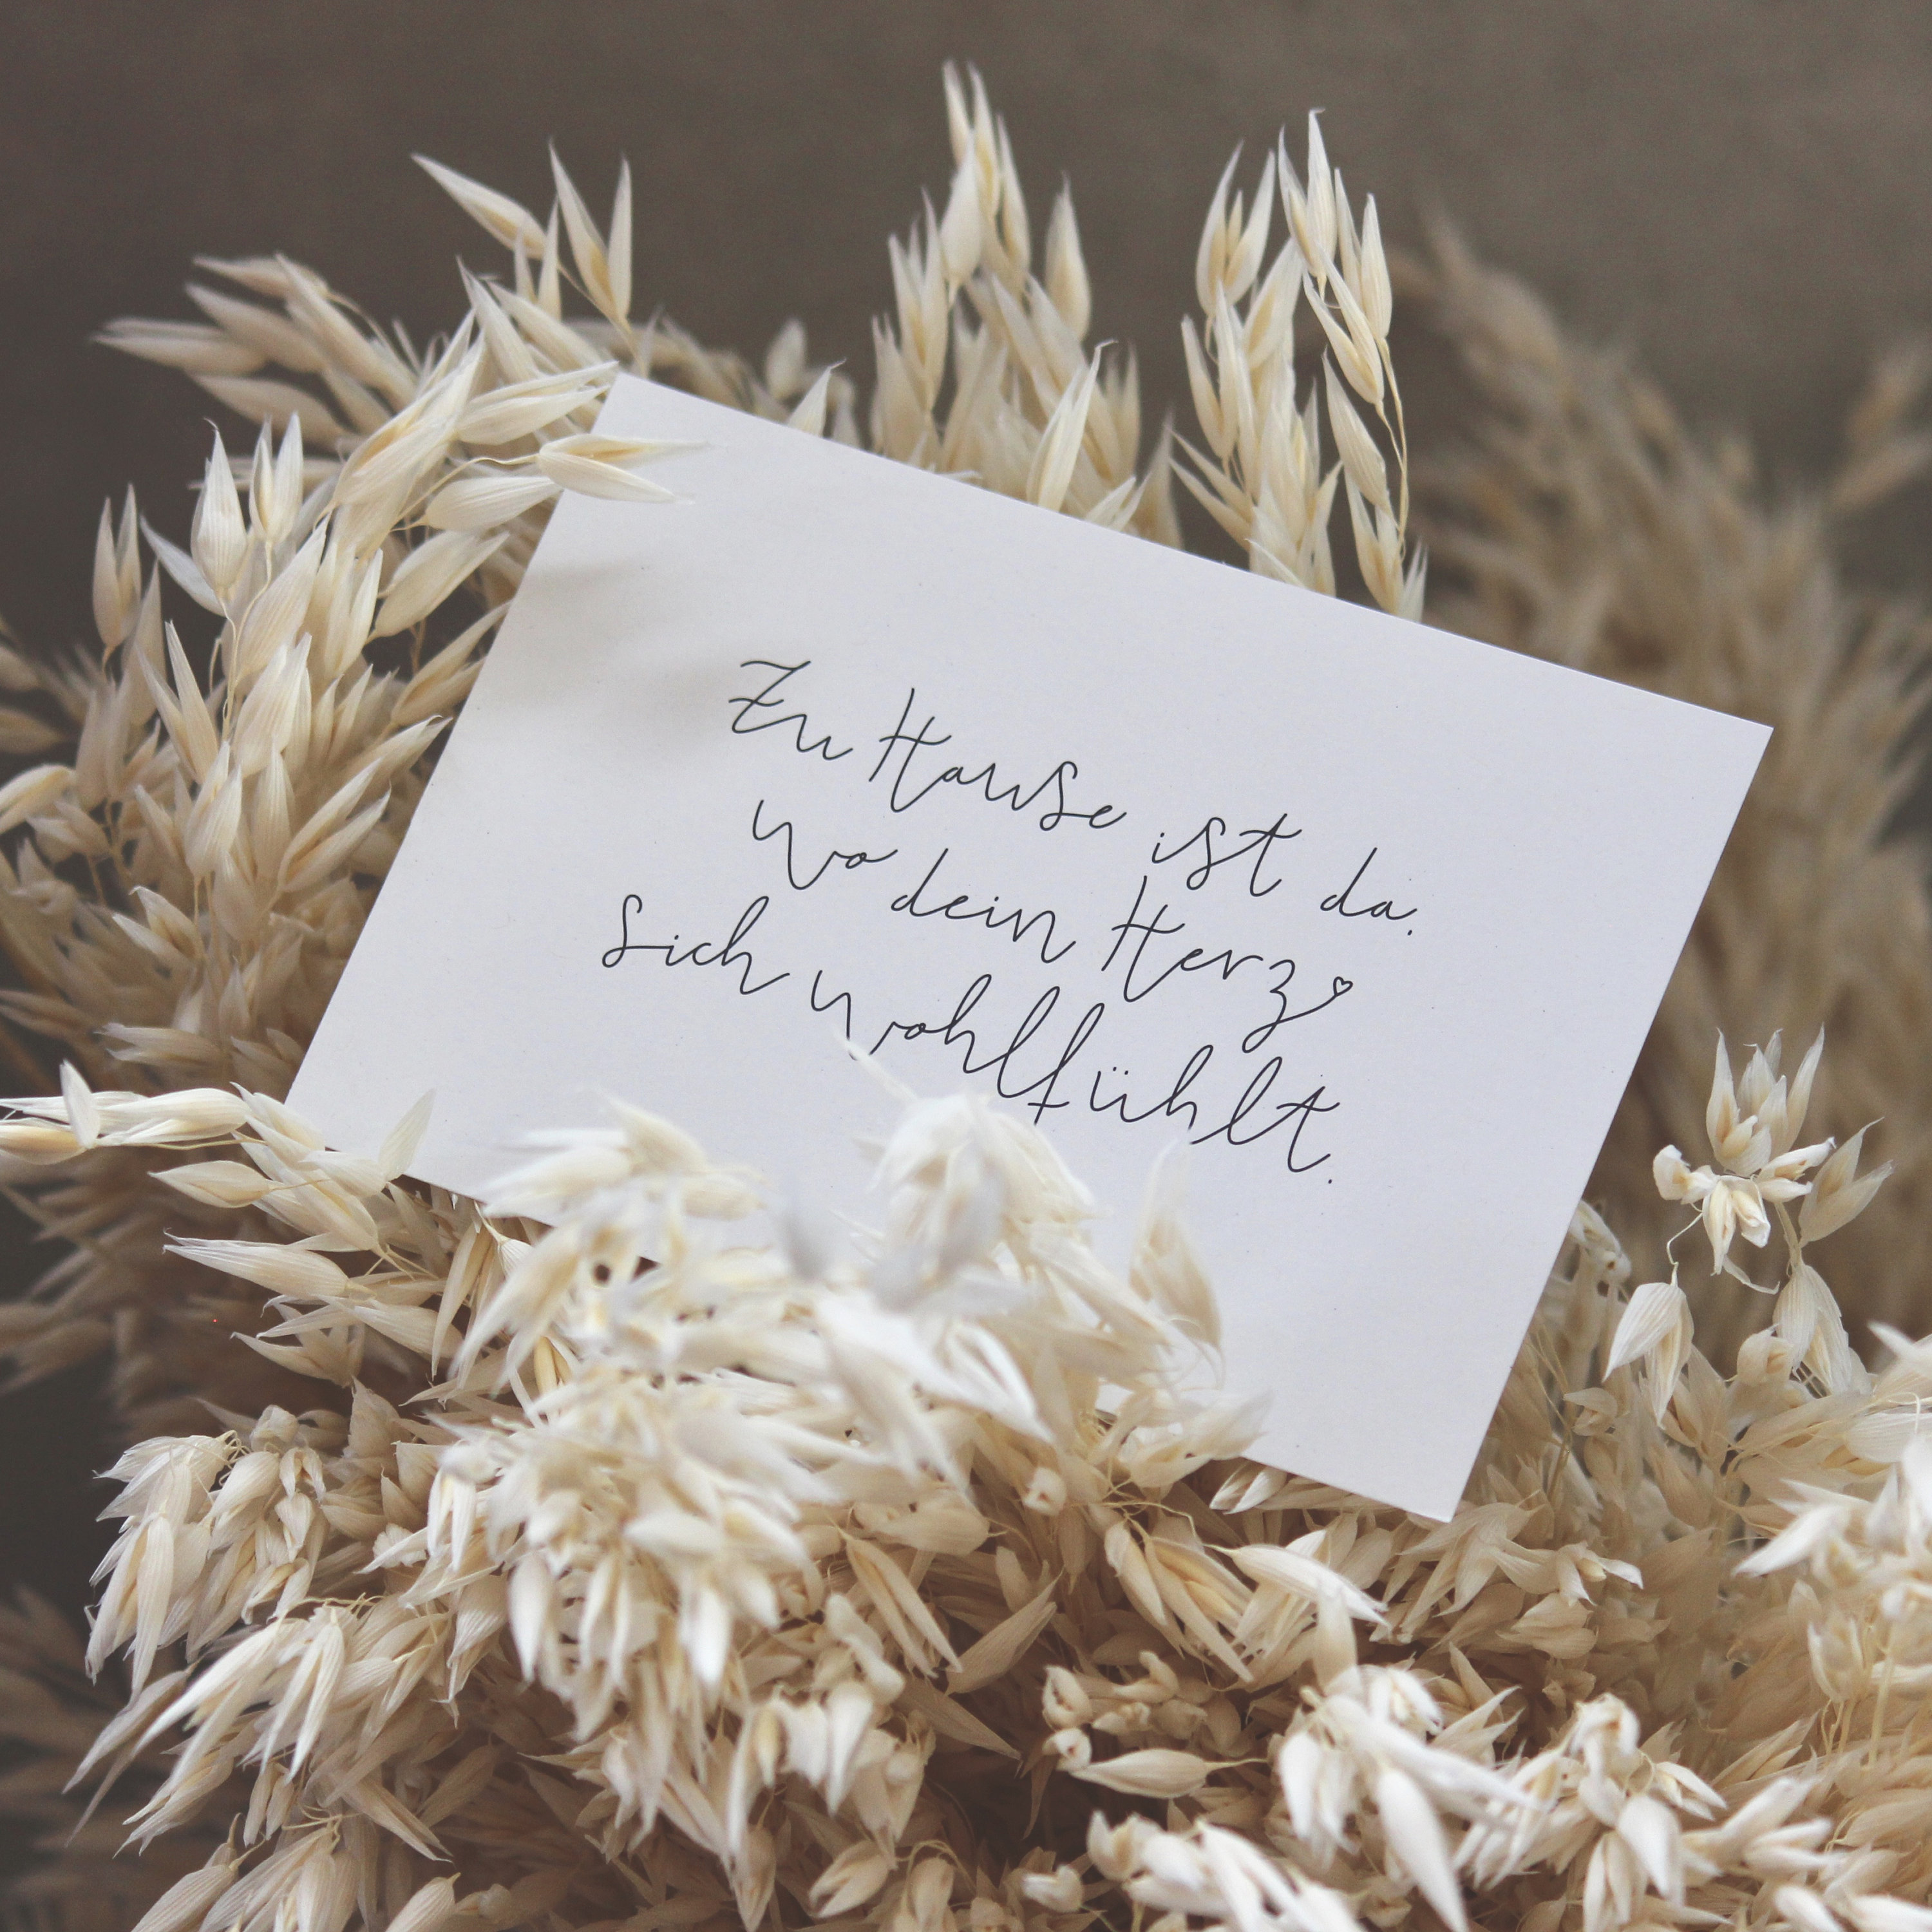 Zu Hause ist da.
wo dein Herz
sich wohlfühlt.